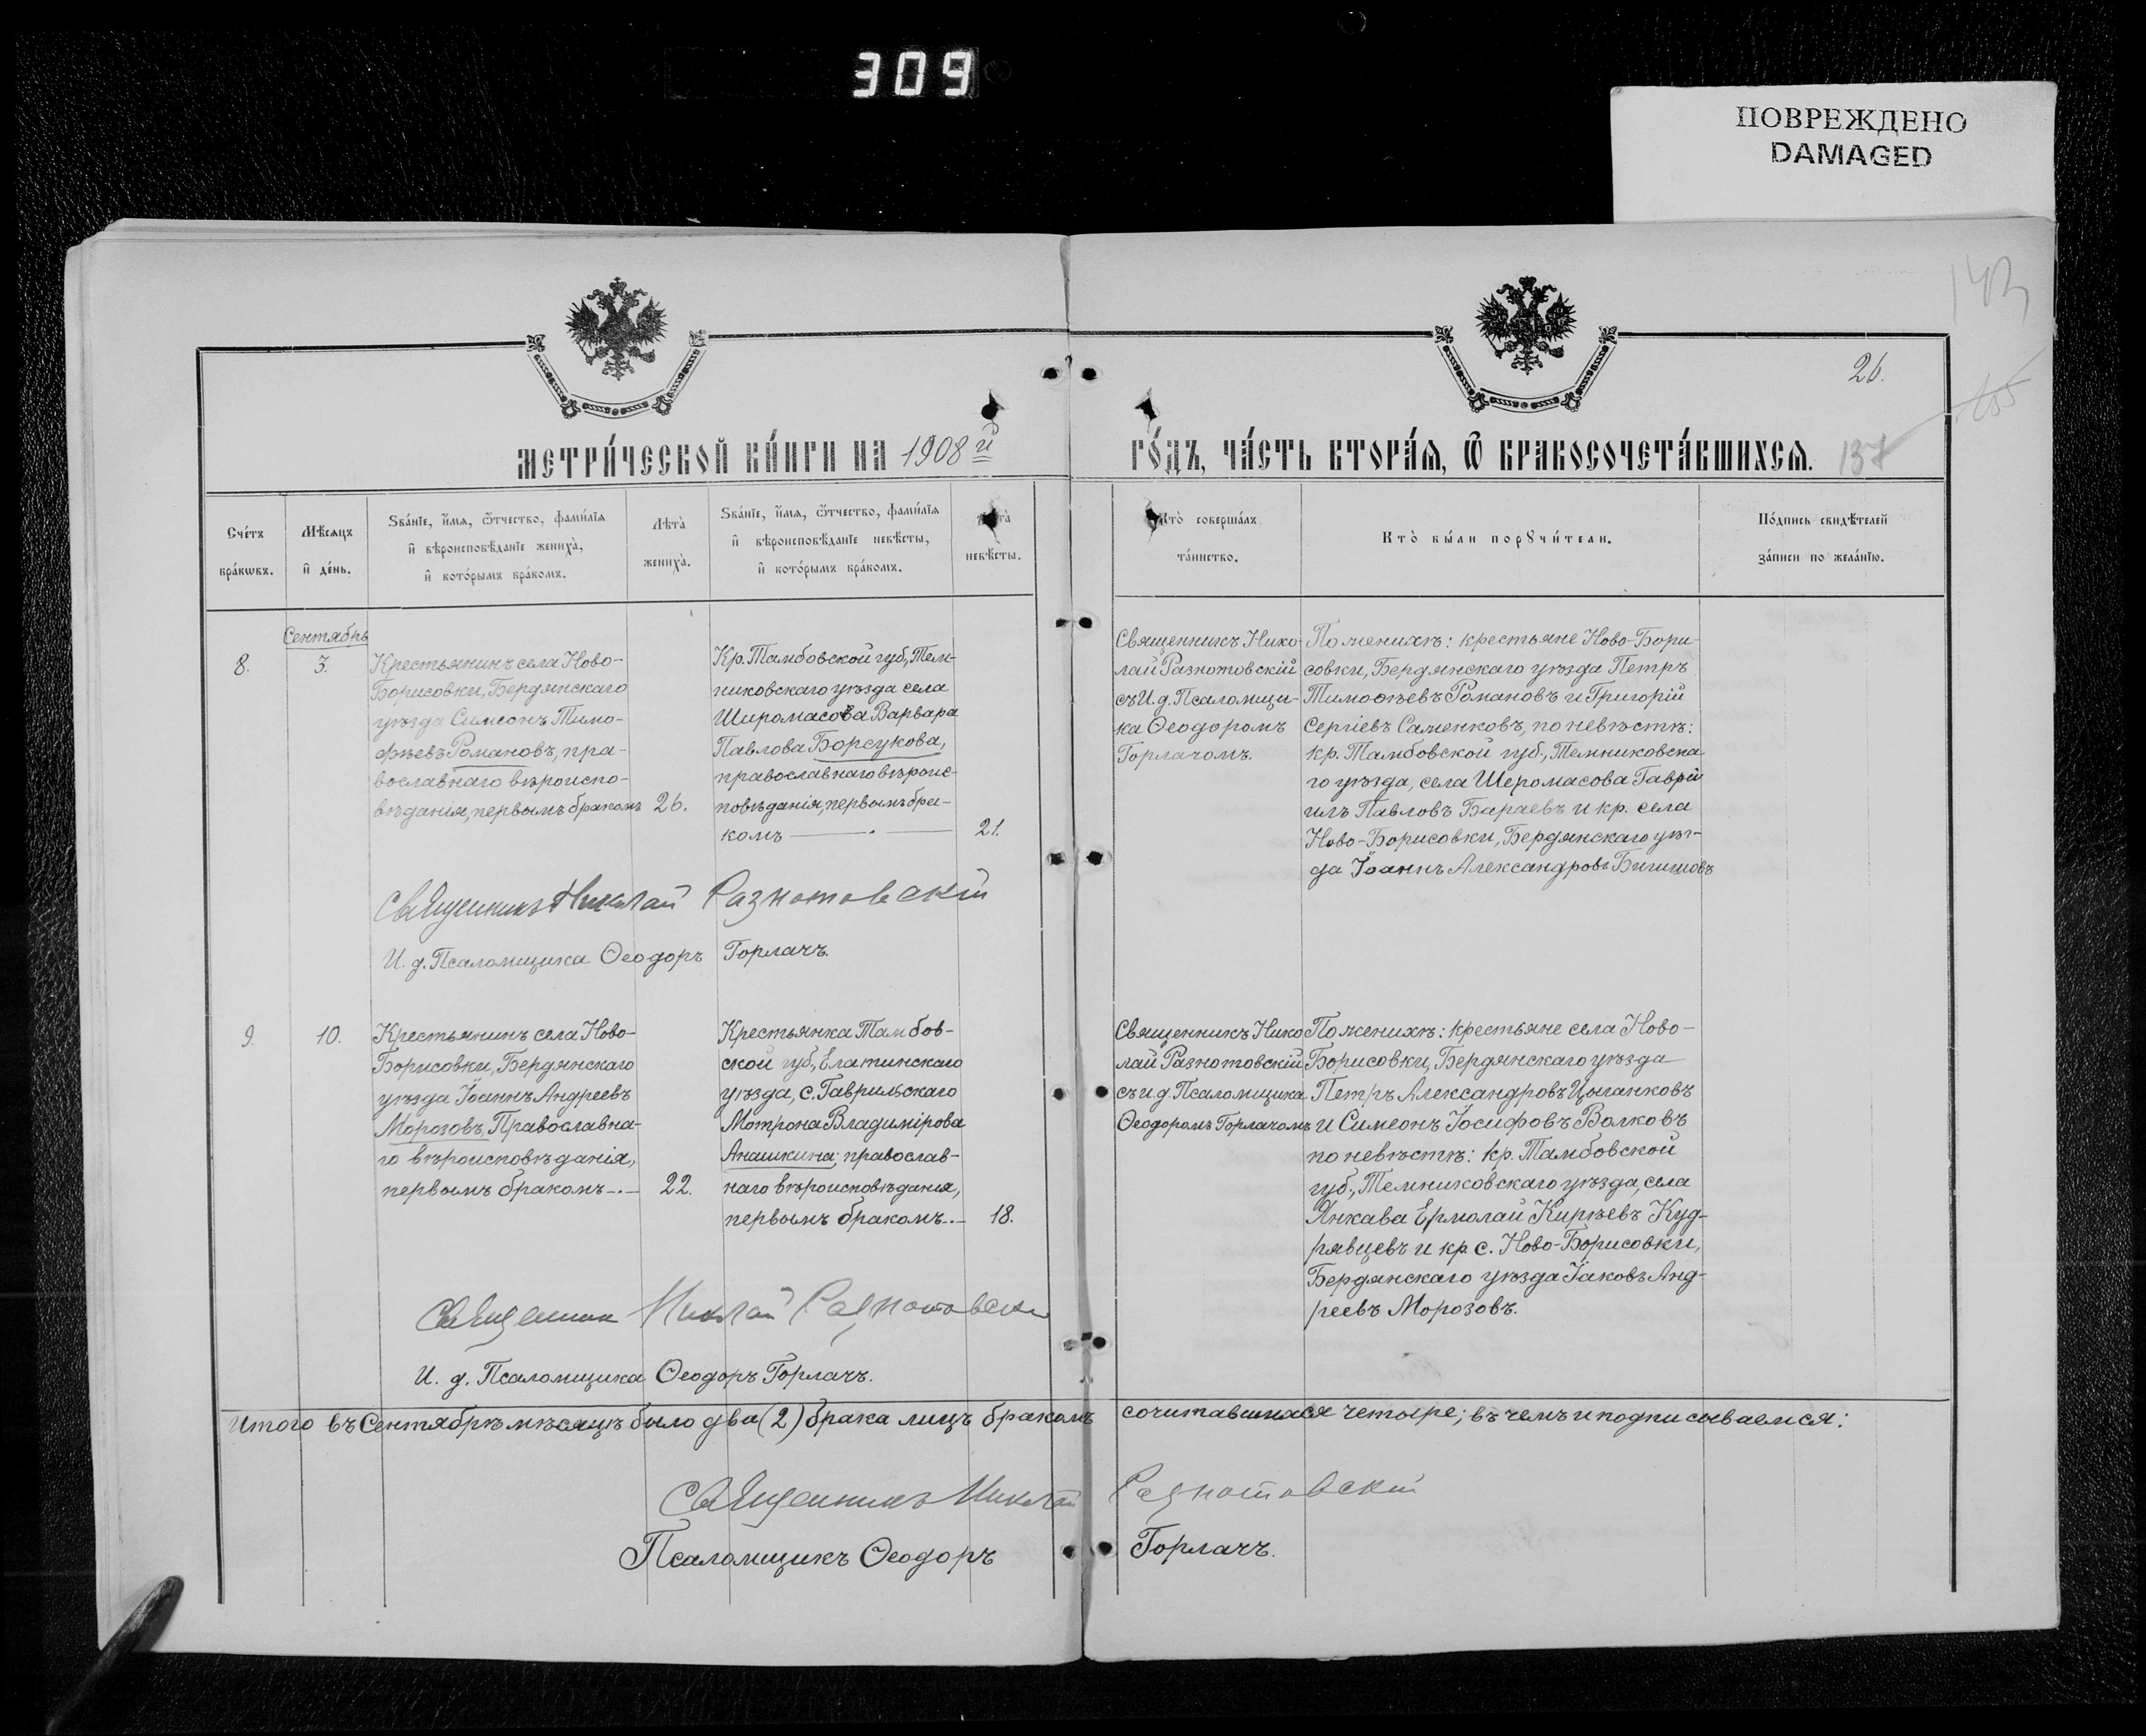 309
ПОВРЕЖДЕНО
DAMAGED
143
26.
155
МЕТРИ́ЧЕСКОЙ КНИ́ГИ НА 1908й
ГО́ДЪ, ЧА́СТЬ ВТОРА́Я, Ѿ БРАКОСОЧЕТА́ВШИХСЯ. 137
Сче́тъ бра́кѡвъ.
Мѣ́сяцъ и҆ де́нь.
Ѕва́нїе, и҆́мя, ѻ҆́тчество, фами́лїя
и҆ вѣроисповѣ́данїе жениха̀,
и҆ кото́рымъ бра́комъ.
Лѣта̀ жениха̀.
Ѕва́нїе, и҆́мя, ѻ҆́тчество, фами́лїя
и҆ вѣроисповѣ́данїе невѣ́сты,
и҆ кото́рымъ бра́комъ.
Лѣта̀ невѣ́сты.
Кто̀ соверша́лъ та́инство.
Кто̀ бы́ли порꙋчи́тели.
По́дпись свидѣ́телей
за́писи по жела́нїю.
Сентябрь
8.
3.
Крестьянинъ села Ново-
Борисовки, Бердянскаго
уѣзда Симеонъ Тимо-
фѣевъ Романовъ, пра-
вославнаго вѣроиспо-
вѣданія, первымъ бракомъ
26.
Кр. Тамбовской губ., Тем-
никовскаго уѣзда села
Широмасова Варвара
Павлова Борсукова,
православнаго вѣроис-
повѣданія, первымъ бра-
комъ
21.
Священникъ Нико-
лай Разнотовскій
съ И. д. Псаломщи-
ка Ѳеодоромъ
Горлачомъ.
По женихѣ: крестьяне Ново-Бори-
совки, Бердянскаго уѣзда Петръ
Тимоѳѣевъ Романовъ и Григорій
Сергіевъ Саменковъ, по невѣстѣ:
кр. Тамбовской губ., Темниковска-
го уѣзда, села Шеромасова Гаврі-
илъ Павловъ Бараевъ и кр. села
Ново-Борисовки, Бердянскаго уѣз-
да Іоаннъ Александровъ
Священникъ Николай Разнотовскій
И. д. Псаломщика Ѳеодоръ Горлачъ.
9.
10.
Крестьянинъ села Ново-
Борисовки, Бердянскаго
уѣзда Іоаннъ Андреевъ
Морозовъ, Православна-
го вѣроисповѣданія,
первымъ бракомъ
22.
Крестьянка Тамбов-
ской губ., Елатинскаго
уѣзда, с. Гаврильскаго
Мотрона Владимірова
Анашкина; православ-
наго вѣроисповѣданія,
первымъ бракомъ.
18.
Священникъ Нико
лай Разнотовскій
съ и д Псаломщика
Ѳеодоромъ Горлачомъ
По женихѣ: крестьяне села Ново-
Борисовки, Бердянскаго уѣзда
Петръ Александровъ Цыганковъ
и Симеонъ Іосифовъ Волковъ
по невѣстѣ: кр. Тамбовской
губ., Темниковскаго уѣзда, села
Анкава Ермолай Кирѣевъ Куд-
рявцевъ и кр с. Ново-Борисовки,
Бердянскаго уѣзда Іаковъ Анд-
реевъ Морозовъ.
Священник Николай Разнотовски
И. д. Псаломщика Ѳеодоръ Горлачъ.
Итого въ Сентябрѣ мѣсяцѣ было два (2) брака лицъ бракомъ сочитавшихся четыре; въ чемъ и подписываемся:
Священникъ Николай Разнотовскій
Псаломщикъ Ѳеодоръ Горлачъ.